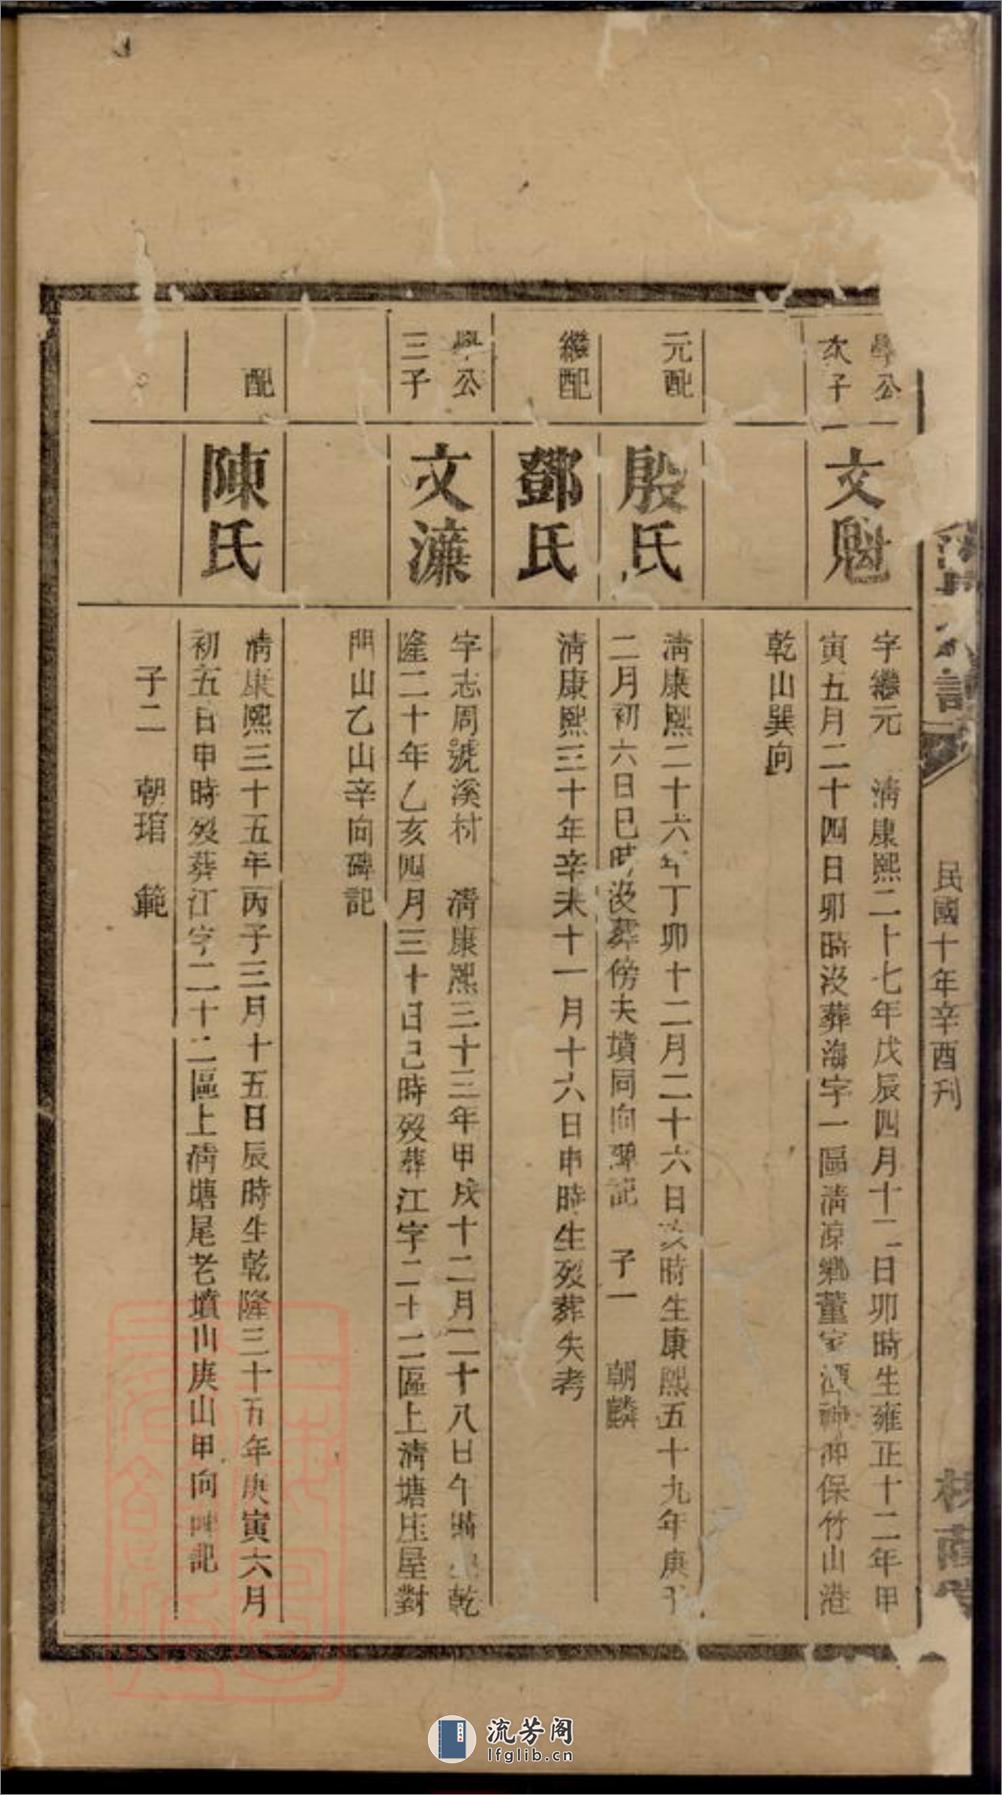 學公
次子
文魁
字繼元 淸康熙二十七年戊辰四月十二日卯時生雍正十二年甲
寅五月二十四日卯時没葬海字一區淸凉鄉董家 神冲保竹山港
乾山巽向
元配
殷氏
淸康熙二十六年丁卯十二月二十六日亥時生康熙五十九年庚子
二月初六日巳時没葬傍夫墳同向碑記 子一 朝麟
繼配
鄧氏
淸康熙三十年辛未十一月十六日申時生歿葬失考
學公
三子
文濂
字志周號溪村 淸康熙三十三年甲戌十二月二十八日午時生乾
隆二十年乙亥四月三十日巳時歿葬江字二十二區上淸塘庄屋對
門山乙山辛向碑記
配
陳氏
淸康熙三十五年丙子三月十五日辰時生乾隆三十五年庚寅六月
初五日申時歿葬江字二十二區上淸塘尾老墳山庚山甲向碑記
子二 朝琯 範
民國十年辛酉刊
流芳阁
lfglib.cn